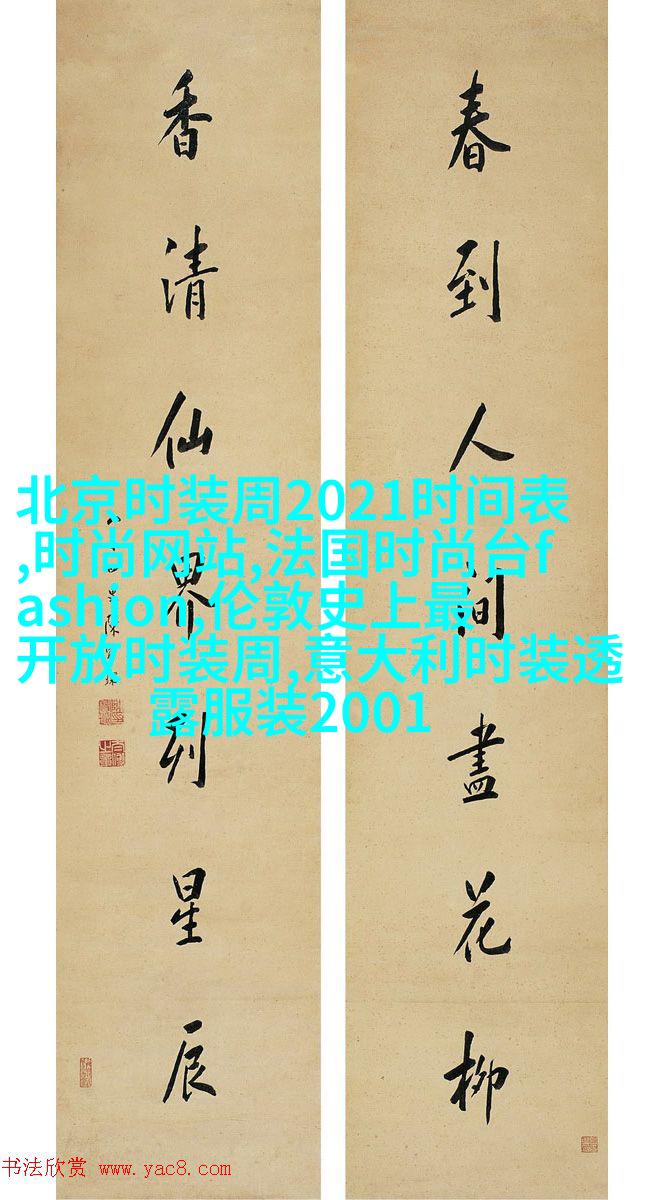 春到人間盡花柳
香清仙界列星辰
北京时装周2021时间表
,时尚网站,法国时尚台f
ashion,伦敦史上最
开放时装周,意大利时装透
露服装2001
书法欣赏 www.yac8.com